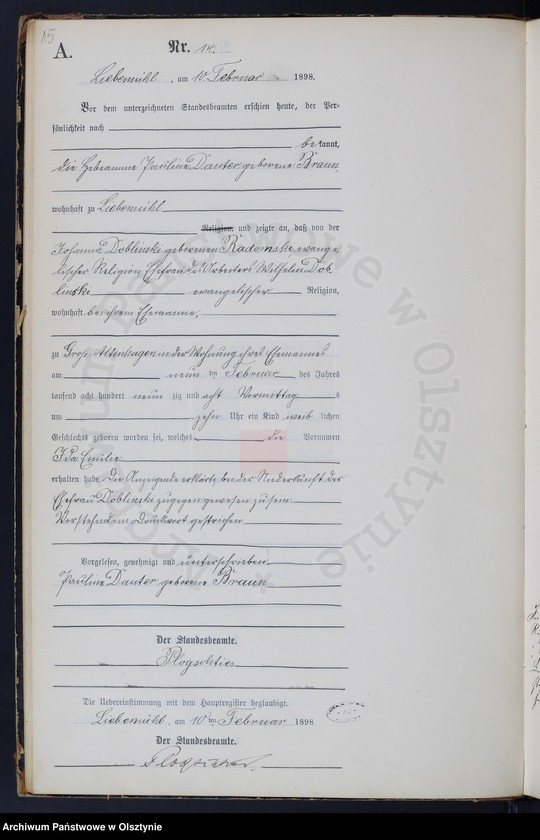 15
A.
Nr. 14.
Liebemühl, am 10 Februar 1898.
Vor dem unterzeichneten Standesbeamten erschien heute, der Per-
sönlichkeit nach
bekannt,
die Hebeamme Pauline Dauter geborene Braun,
wohnhaft zu Liebemühl
Religion, und zeigte an, daß von der
Johanna Doblinski geborenen Radomski evange
lischer Religion, Ehefrau des Arbeiters Wilhelm Dob
linski evangelischer Religion,
wohnhaft bei ihrem Ehemanne,
zu Groß Altenhagen in der Wohnung ihres Ehemannes
am neun ten Februar des Jahres
tausend acht hundert neun zig und acht Vormittag s
um zehn Uhr ein Kind weib lichen
Geschlechts geboren worden sei, welches die Vornamen
Ida Emilie
erhalten habe. Die Anzeigende erklärte, bei der Niederkunft der
Ehefrau Doblinski zugegen gewesen zu sein.
Vorstehendem Druckwort gestrichen
Vorgelesen, genehmigt und unterschrieben
Pauline Dauter geborene Braun
Der Standesbeamte.
Die Uebereinstimmung mit dem Hauptregister beglaubigt.
Liebemühl, am 10 ten Februar 1898
Der Standesbeamte.
Archiwum Państwowe w Olsztynie
Archiwum Państwowe w Olsztynie